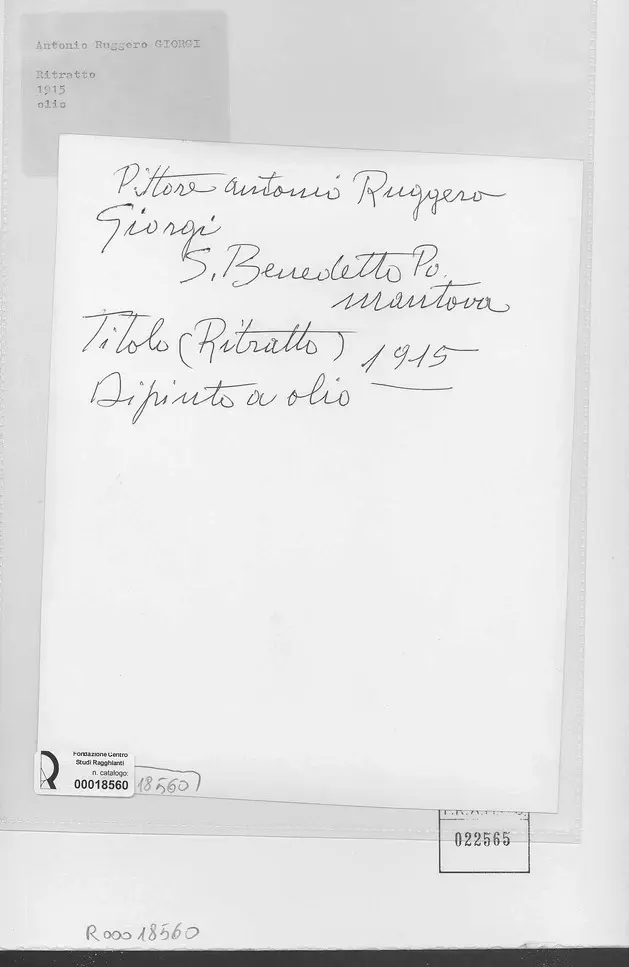 Antonio Ruggero GIORGI
Ritratto
1915
olio
Pittore antonio Ruggero
Giorgi
S. Benedetto Po.
mantova
Titolo (Ritratto) 1915
Dipinto a olio
Fondazione Centro
Studi Ragghianti
n. catalogo:
00018560
18560
022565
R00018560